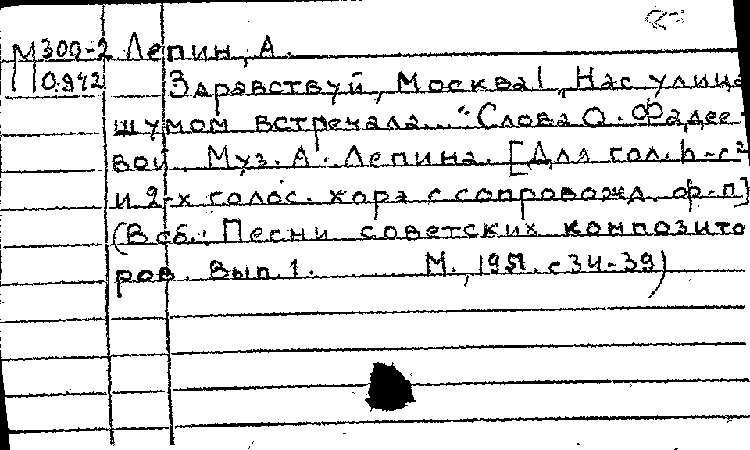 М300-2 Лепин, А.
П0942 Здравствуй, Москва! „Нас улица
шумом встречала..." Слова О. Фадее-
вой. Муз. А. Лепина. [Для гол.
и 2-х голос. хора с сопровожд. ф-п]
(В сб.: Песни советских композито
ров. Вып. 1. М., 1951. с 34-39)